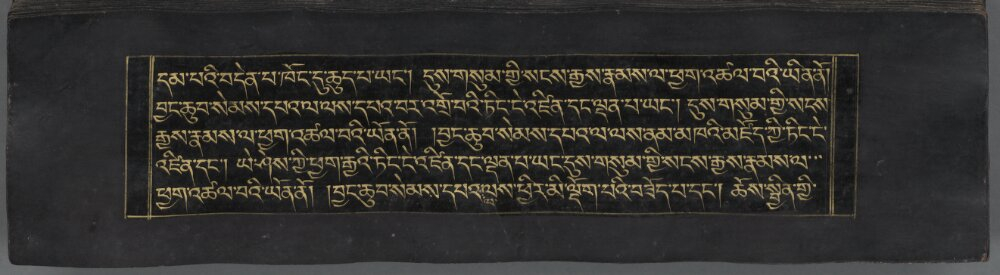 དམ་པའི་བདེན་པ་ཁོང་དུ་ཆུད་པ་ཡང་། དུས་གསུམ་གྱི་སངས་རྒྱས་རྣམས་ལ་ཕྱག་འཚལ་བའི་ཡིནནོ
བྱང་ཆུབ་སེམས་དཔའ་ལ་ལས་དཔའ་བར་འགྲོ་བའི་ཏིང་ངེ་འཛིན་དང་ལྡན་པ་ཡང་། དུས་གསུམ་གྱི་སངས
རྒྱས་རྣམས་ལ་ཕྱག་འཚལ་བའི་ཡོནནོ། །བྱང་ཆུབ་སེམས་དཔའ་ལ་ལས་ནམ་མཁའི་མཛོད་ཀྱི་ཏིང་ངེ་
འཛིན་དང་། ཡེ་ཤེས་ཀྱི་ཕྱག་རྒྱའི་ཏིང་ངེ་འཛིན་དང་ལྡན་པ་ཡང་དུས་གསུམ་གྱི་སངས་རྒྱས་རྣམས་ལ་་་
ཕྱག་འཚལ་བའི་ཡོནནོ། །བྱང་ཆུབ་སེམས་དཔའ་ལྟས་ཕྱིར་མི་ལྡོག་པའི་བཟོད་པ་དང་། ཆོས་སྦྱིན་གྱི་